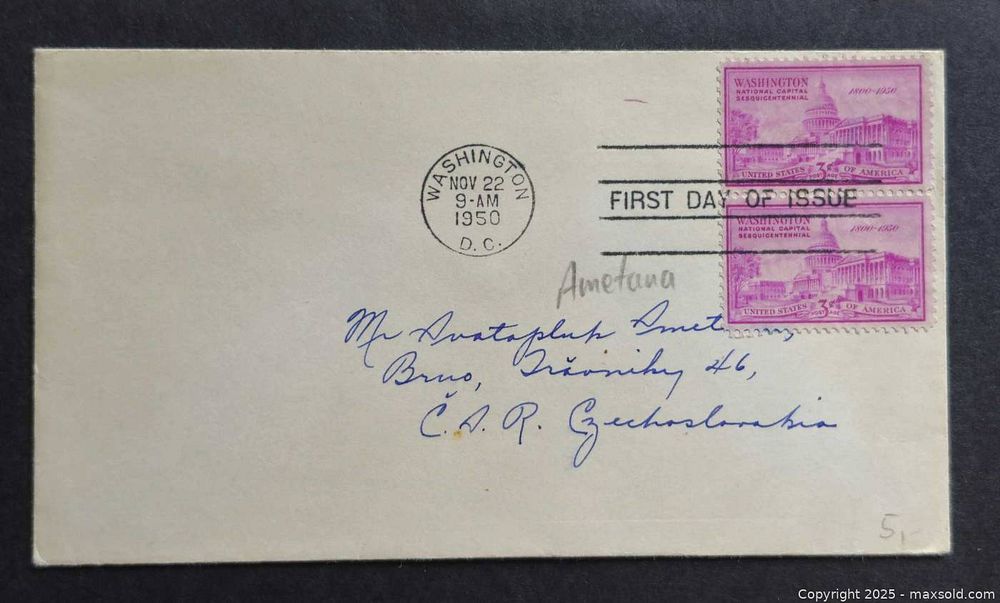 WASHINGTON
NATIONAL CAPITAL
SESQUICENTENNIAL
1800-1950
UNITED STATES 3¢ OF AMERICA
POSTAGE
WASHINGTON
NOV 22
9-AM
1950
D. C.
FIRST DAY OF ISSUE
WASHINGTON
NATIONAL CAPITAL
SESQUICENTENNIAL
1800-1950
UNITED STATES 3¢ OF AMERICA
POSTAGE
Ametana
Mr Svatopluk Smetana,
Brno, Trávníky 46,
Č. S. R. Czechoslovakia
5,-
Copyright 2025 - maxsold.com